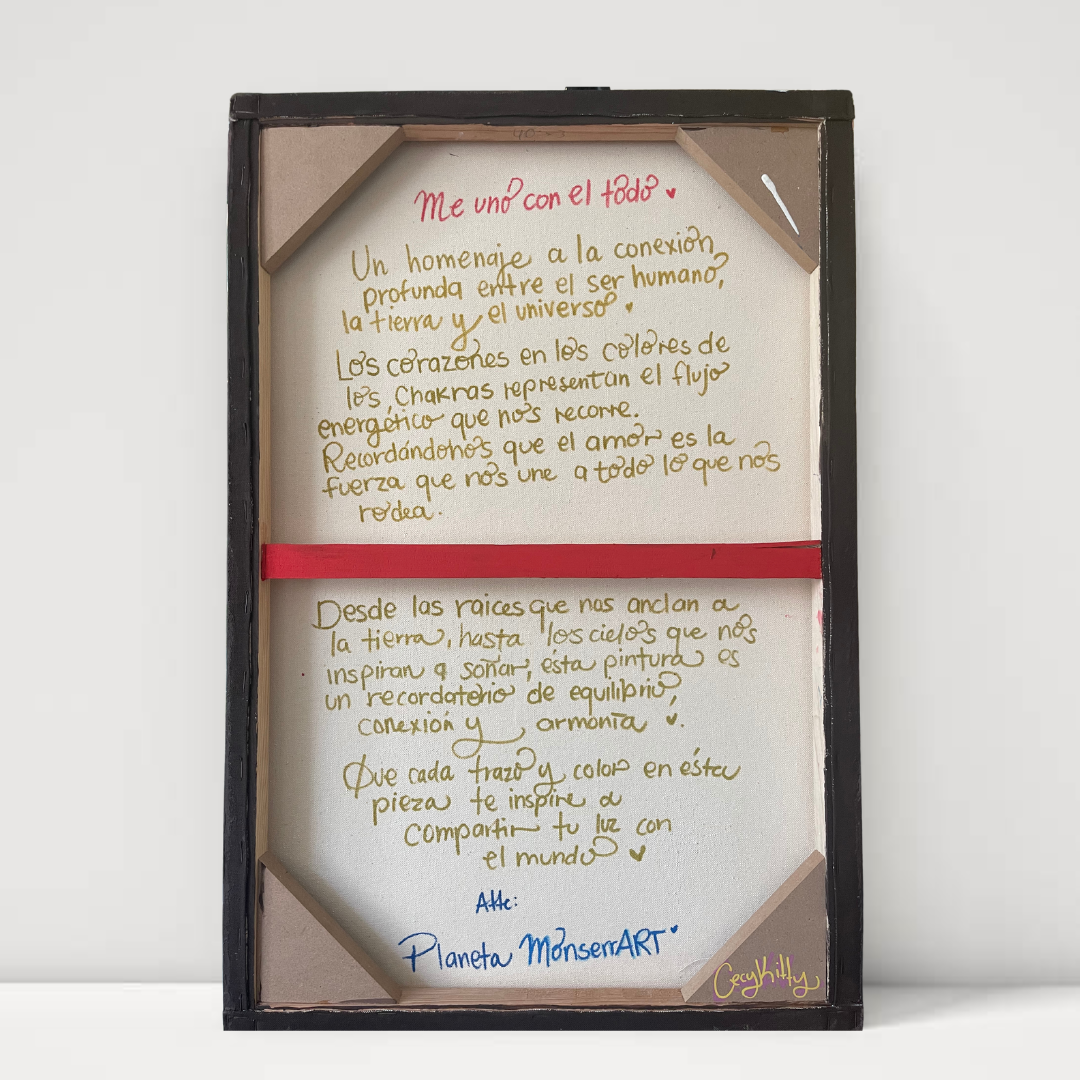 Me uno con el todo
Un homenaje a la conexión
profunda entre el ser humano,
la tierra y el universo.
Los corazones en los colores de
los Chakras representan el flujo
energético que nos recorre.
Recordándonos que el amor es la
fuerza que nos une a todo lo que nos
rodea.
Desde las raices que nos anclan a
la tierra, hasta los cielos que nos
inspiran a soñar, ésta pintura es
un recordatorio de equilibrio,
conexión y armonía.
Que cada trazo y color en ésta
pieza te inspire a
compartir tu luz con
el mundo
Atte:
Planeta MonserrART
CecyKitty